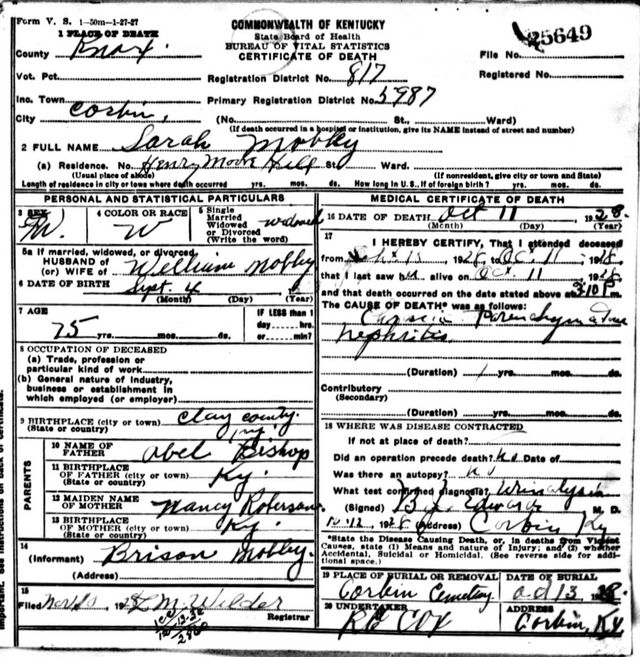 Form V. S. 1-50m-1-27-27
COMMONWEALTH OF KENTUCKY
State Board of Health
BUREAU OF VITAL STATISTICS
CERTIFICATE OF DEATH
1 PLACE OF DEATH
County Knox.
File No. 25649
Vot. Pct.
Registration District No. 817
Registered No.
Inc. Town
Primary Registration District No. 5987
City Corbin, (No. St., Ward)
(If death occurred in a hospital or institution, give its NAME instead of street and number)
2 FULL NAME Sarah Mobley
(a) Residence. No. Henry Moore Hill St. Ward.
(Usual place of abode) (If nonresident, give city or town and State)
Length of residence in city or town where death occurred yrs. mos. ds. How long in U. S., if of foreign birth? yrs. mos. ds.
PERSONAL AND STATISTICAL PARTICULARS
3 SEX
4 COLOR OR RACE W
5 Single
Married
Widowed
or Divorced
(Write the word) widowed
5a If married, widowed, or divorced
HUSBAND OF
(or) WIFE OF William Mobley
6 DATE OF BIRTH Sept. 4
(Month) (Day) (Year)
7 AGE
75 yrs. mos. ds.
IF LESS than 1
day hrs.
or min?
8 OCCUPATION OF DECEASED
(a) Trade, profession or
particular kind of work
(b) General nature of industry,
business or establishment in
which employed (or employer)
9 BIRTHPLACE (city or town) Clay county
(State or country) Ky.
PARENTS
10 NAME OF
FATHER Abel Bishop
11 BIRTHPLACE
OF FATHER (city or town) Ky.
(State or country)
12 MAIDEN NAME
OF MOTHER Nancy Roberson
13 BIRTHPLACE
OF MOTHER (city or town) Ky.
(State or country)
14
(Informant) Brison Mobley.
(Address)
15
Filed Nov 10 L M. Wilder
Registrar
MEDICAL CERTIFICATE OF DEATH
16 DATE OF DEATH Oct 11 1928.
(Month) (Day) (Year)
17
I HEREBY CERTIFY, That I attended deceased
from Sept 15 1928 to Oct. 11 1928
that I last saw her alive on Oct. 11 1928
and that death occurred on the date stated above at 3:10 P m.
The CAUSE OF DEATH* was as follows:
Parenchymatous
nephritis
(Duration) 1 yrs. mos. ds.
Contributory
(Secondary)
(Duration) yrs. mos. ds.
18 WHERE WAS DISEASE CONTRACTED
If not at place of death?
Did an operation precede death? no Date of
Was there an autopsy? no
What test confirmed diagnosis? urinalysis
(Signed) Edwards M. D.
10-12 1928 (Address) Corbin Ky
*State the Disease Causing Death, or, in deaths from Violent
Causes, state (1) Means and nature of Injury; and (2) whether
Accidental, Suicidal or Homicidal. (See reverse side for addi-
tional space.)
19 PLACE OF BURIAL OR REMOVAL
Corbin Cemetery
DATE OF BURIAL
Oct 13 1928
20 UNDERTAKER
Cox
ADDRESS
Corbin, Ky